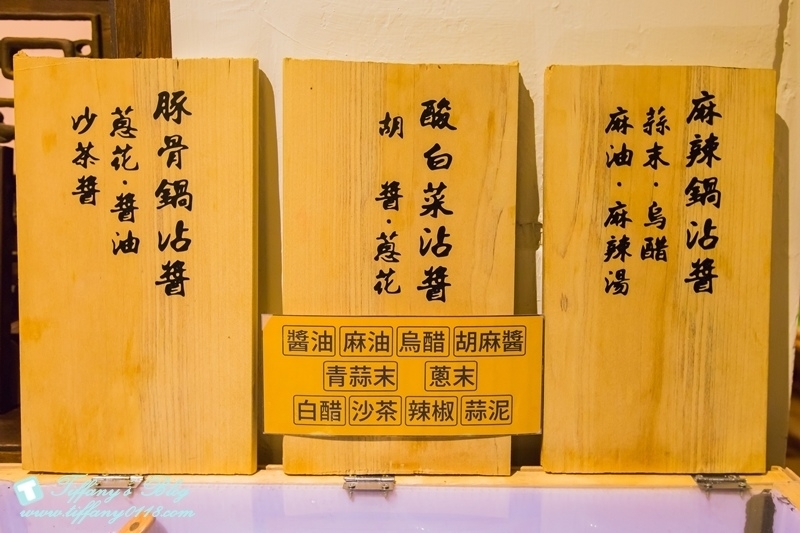 麻辣鍋沾醬
蒜末·烏醋
麻油·麻辣湯
酸白菜沾醬
胡 醬·蔥花
豚骨鍋沾醬
蔥花·醬油
沙茶醬
醬油 麻油 烏醋 胡麻醬
青蒜末 蔥末
白醋 沙茶 辣椒 蒜泥
Tiffany's Blog
www.tiffany0118.com